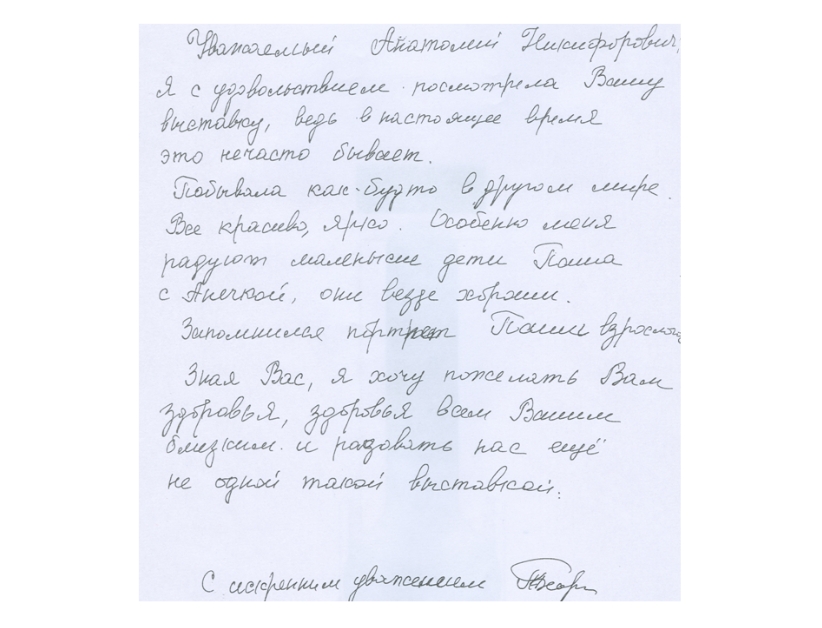 Уважаемый Анатолий Никифорович,
я с удовольствием посмотрела Вашу
выставку, ведь в настоящее время
это нечасто бывает.
Побывала как-будто в другом мире.
Все красиво, ярко. Особенно меня
радуют маленькие дети Паша
с Анечкой, они везде хороши.
Запомнился портрет Паши взрослого
Зная Вас, я хочу пожелать Вам
здоровья, здоровья всем Вашим
близким и радовать нас ещё
не одной такой выставкой.
С искренним уважением